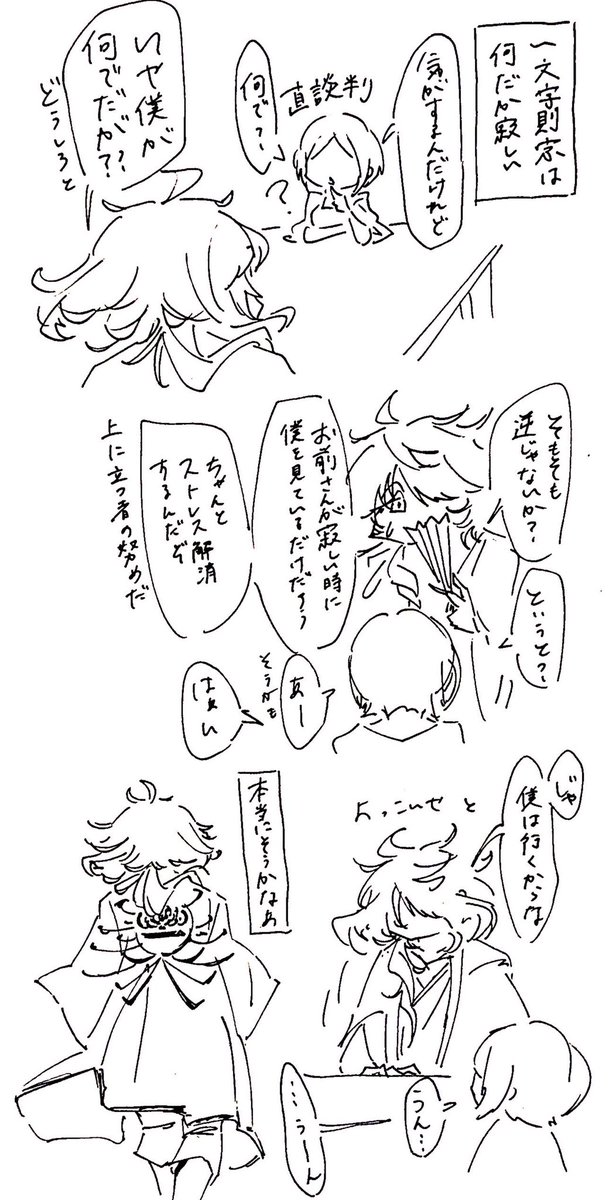 一文字則宗は
何だか寂しい
気がするんだけれど
直談判
何で?
?
いや僕が
何でだが??
どうしろと
そもそも
逆じゃないか?
というと?
お前さんが寂しい時に
僕を見ているだけだろう
ちゃんと
ストレス解消
するんだぞ
上に立つ者の努めだ
あー
そうかも
はぁい
じゃ
僕は行くからな
よっこいせ と
うん…
…うーん
本当にそうかなあ